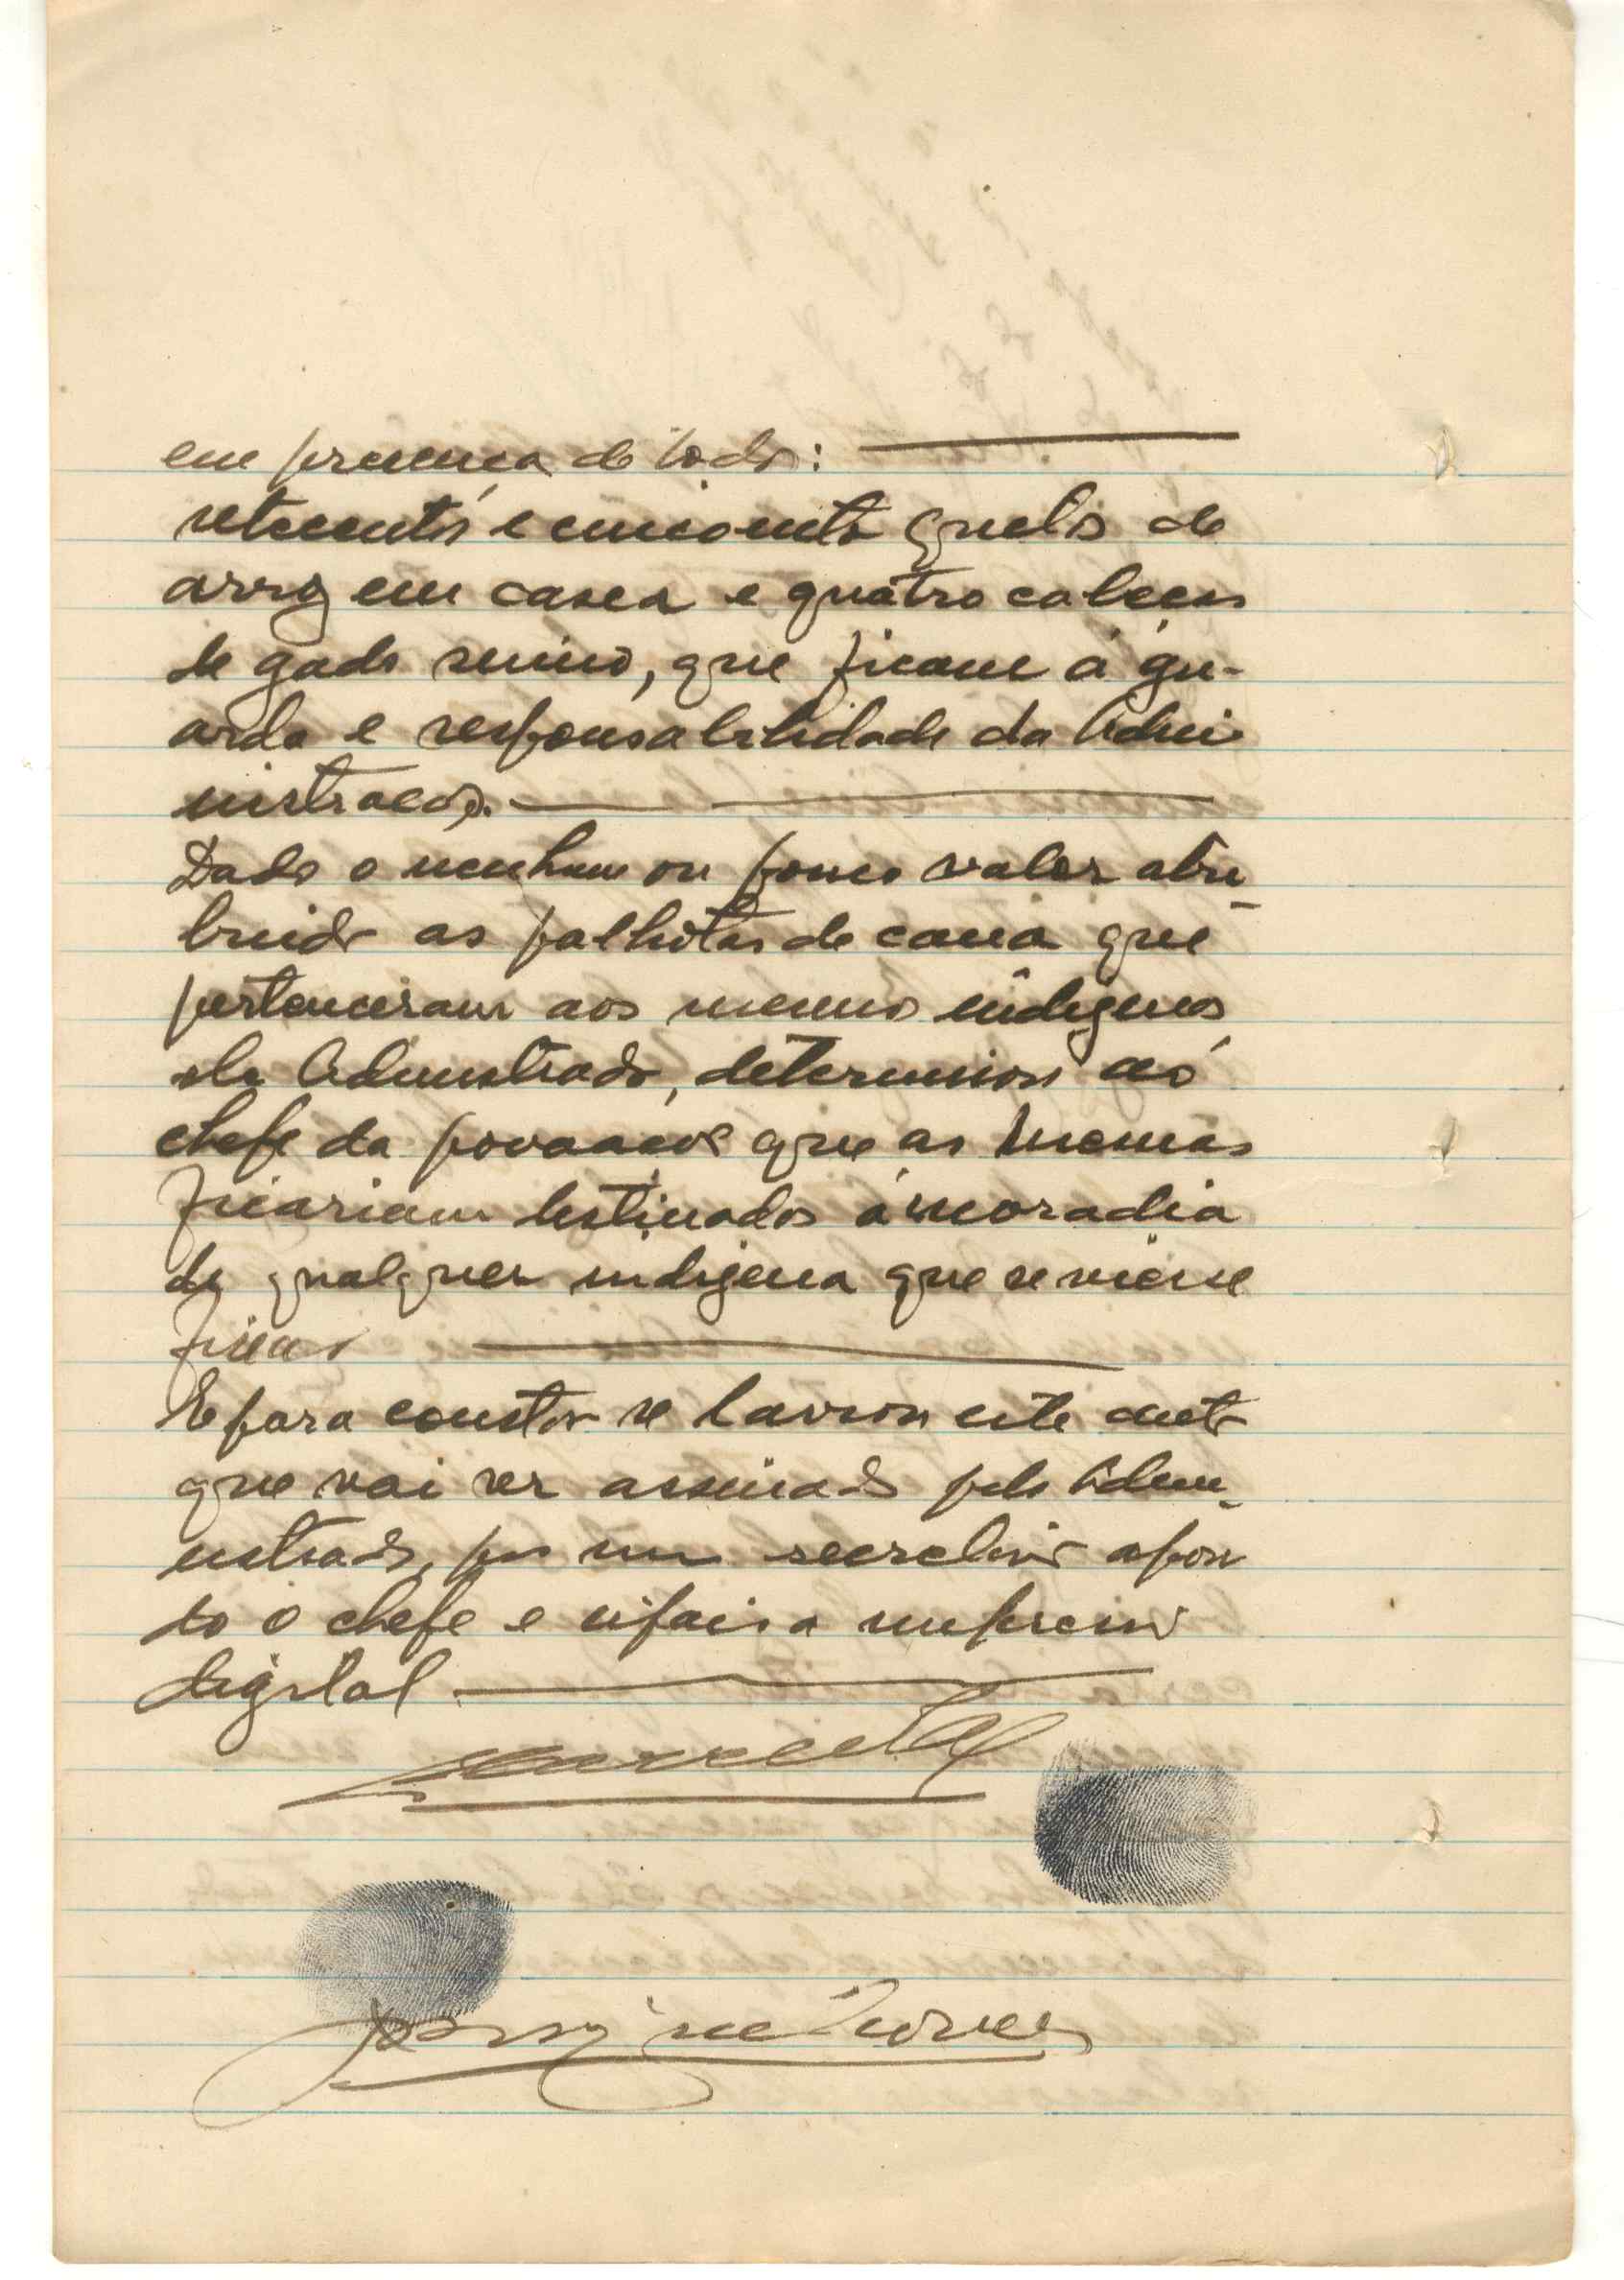 em presença de todos:
setecentos e cincoenta quilos de
arroz em casca e quatro cabeças
de gado suino, que ficam á gu-
arda e responsabilidade da Admi
nistração.
Dado o nenhum ou pouco valor atri-
buido as palhotas de cana que
pertenceram aos mesmos indigenas
ele Administrador, determinou ao
chefe da povoação que as mesmas
ficariam destinadas á moradia
de qualquer indigena que se viesse
ficar
E para constar se lavrou este auto
que vai ser assinado pelo Admi-
nistrador, por mim secretario apon
do o chefe e sipais a impressão
digital